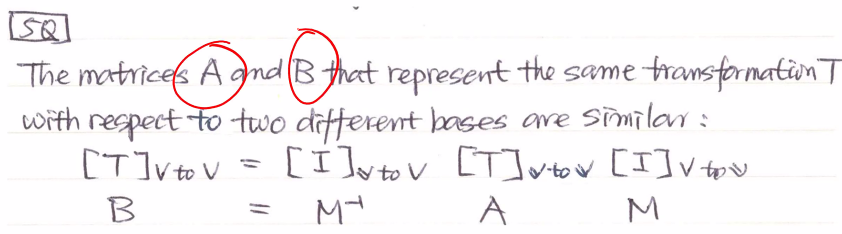 5Q
The matrices A and B that represent the same transformation T
with respect to two different bases are similar :
[T]V to V = [I]v to V [T]v to v [I]V to v
B = M⁻¹ A M